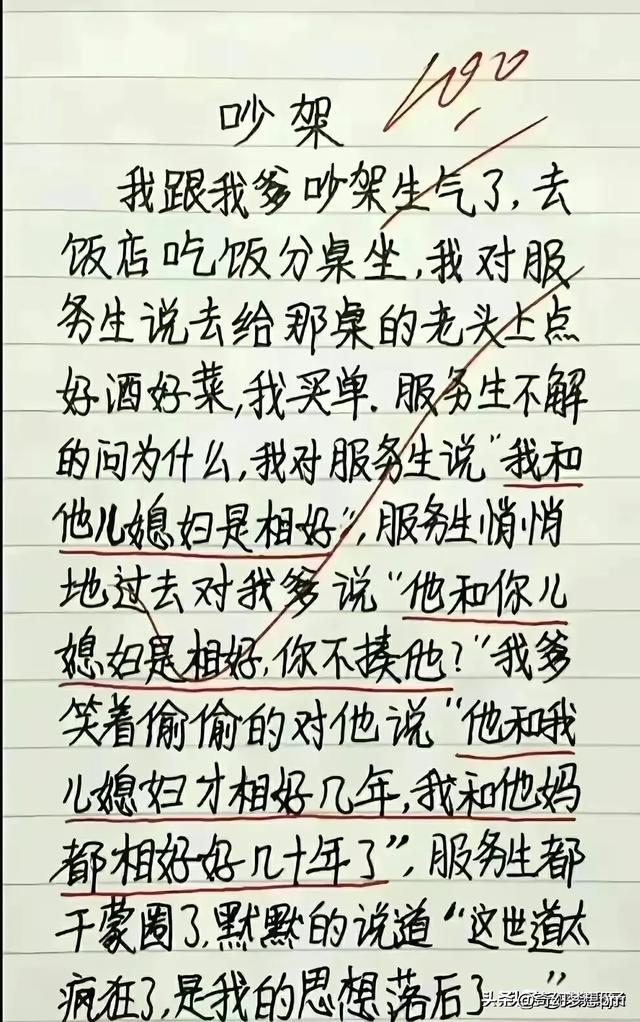 100
吵架
我跟我爹吵架生气了,去
饭店吃饭分桌坐,我对服
务生说去给那桌的老头上点
好酒好菜,我买单.服务生不解
的问为什么,我对服务生说"我和
他儿媳妇是相好",服务生悄悄
地过去对我爹说"他和你儿
媳妇是相好,你不揍他?"我爹
笑着偷偷的对他说"他和我
儿媳妇才相好几年,我和他妈
都相好好几十年了",服务生都
干蒙圈了,默默的说道"这世道太
疯狂了,是我的思想落后了 "
头条